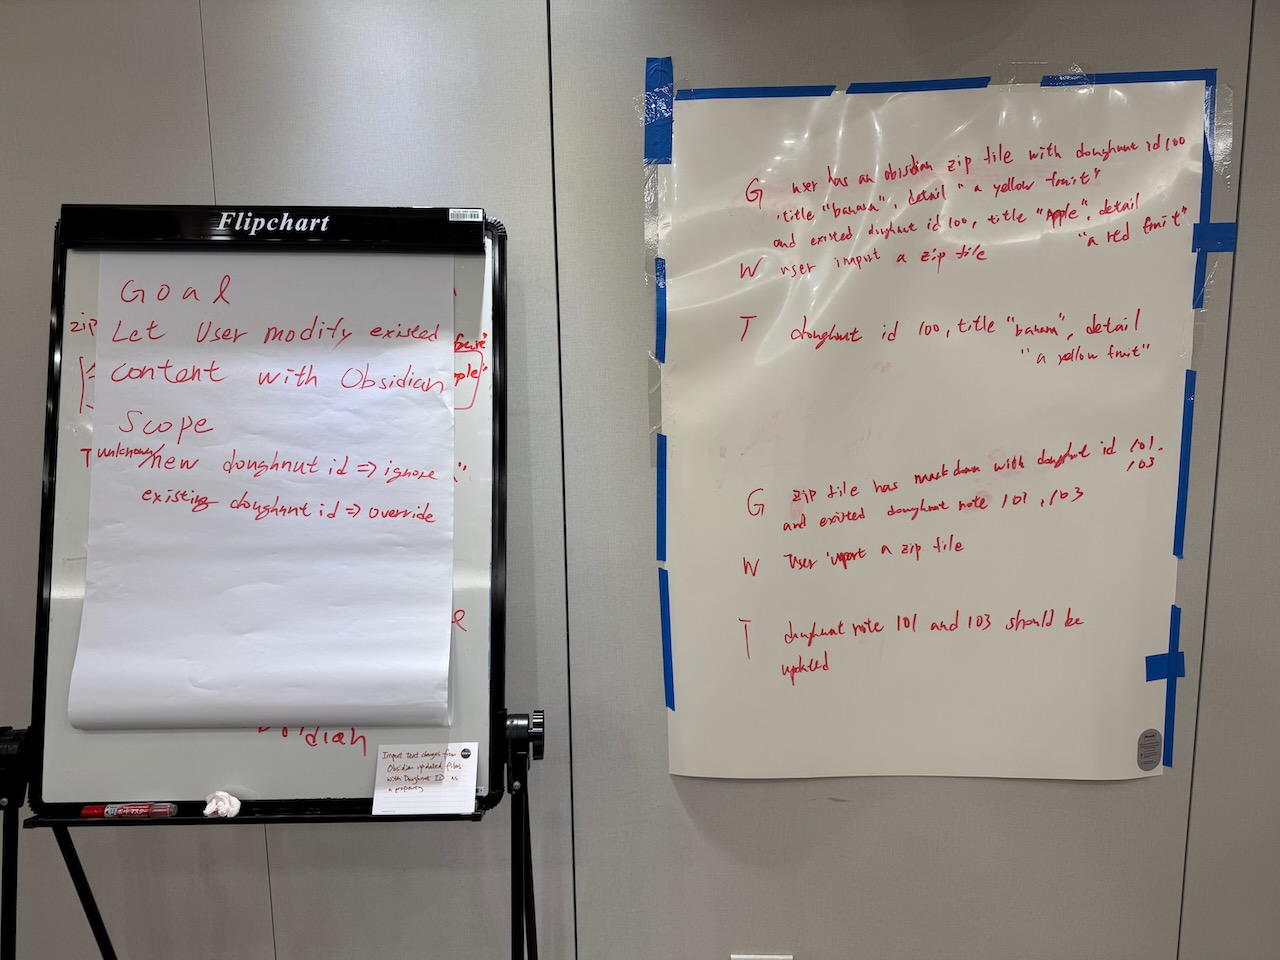 Flipchart
Goal
Let User modify existed
content with Obsidian
Scope
unknown/new doughnut id => ignore
existing doughnut id => override
zip
T
Import text changes from
Obsidian updated files
with Doughnut ID as
a property
G user has an obsidian zip file with doughnut id 100
title "banana", detail "a yellow fruit"
and existed doughnut id 100, title "Apple", detail
"a red fruit"
W user import a zip file
T doughnut id 100, title "banana", detail
"a yellow fruit"
G zip file has markdown with doughnut id 101.
103
and existed doughnut note 101, 103
W User import a zip file
T doughnut note 101 and 103 should be
updated